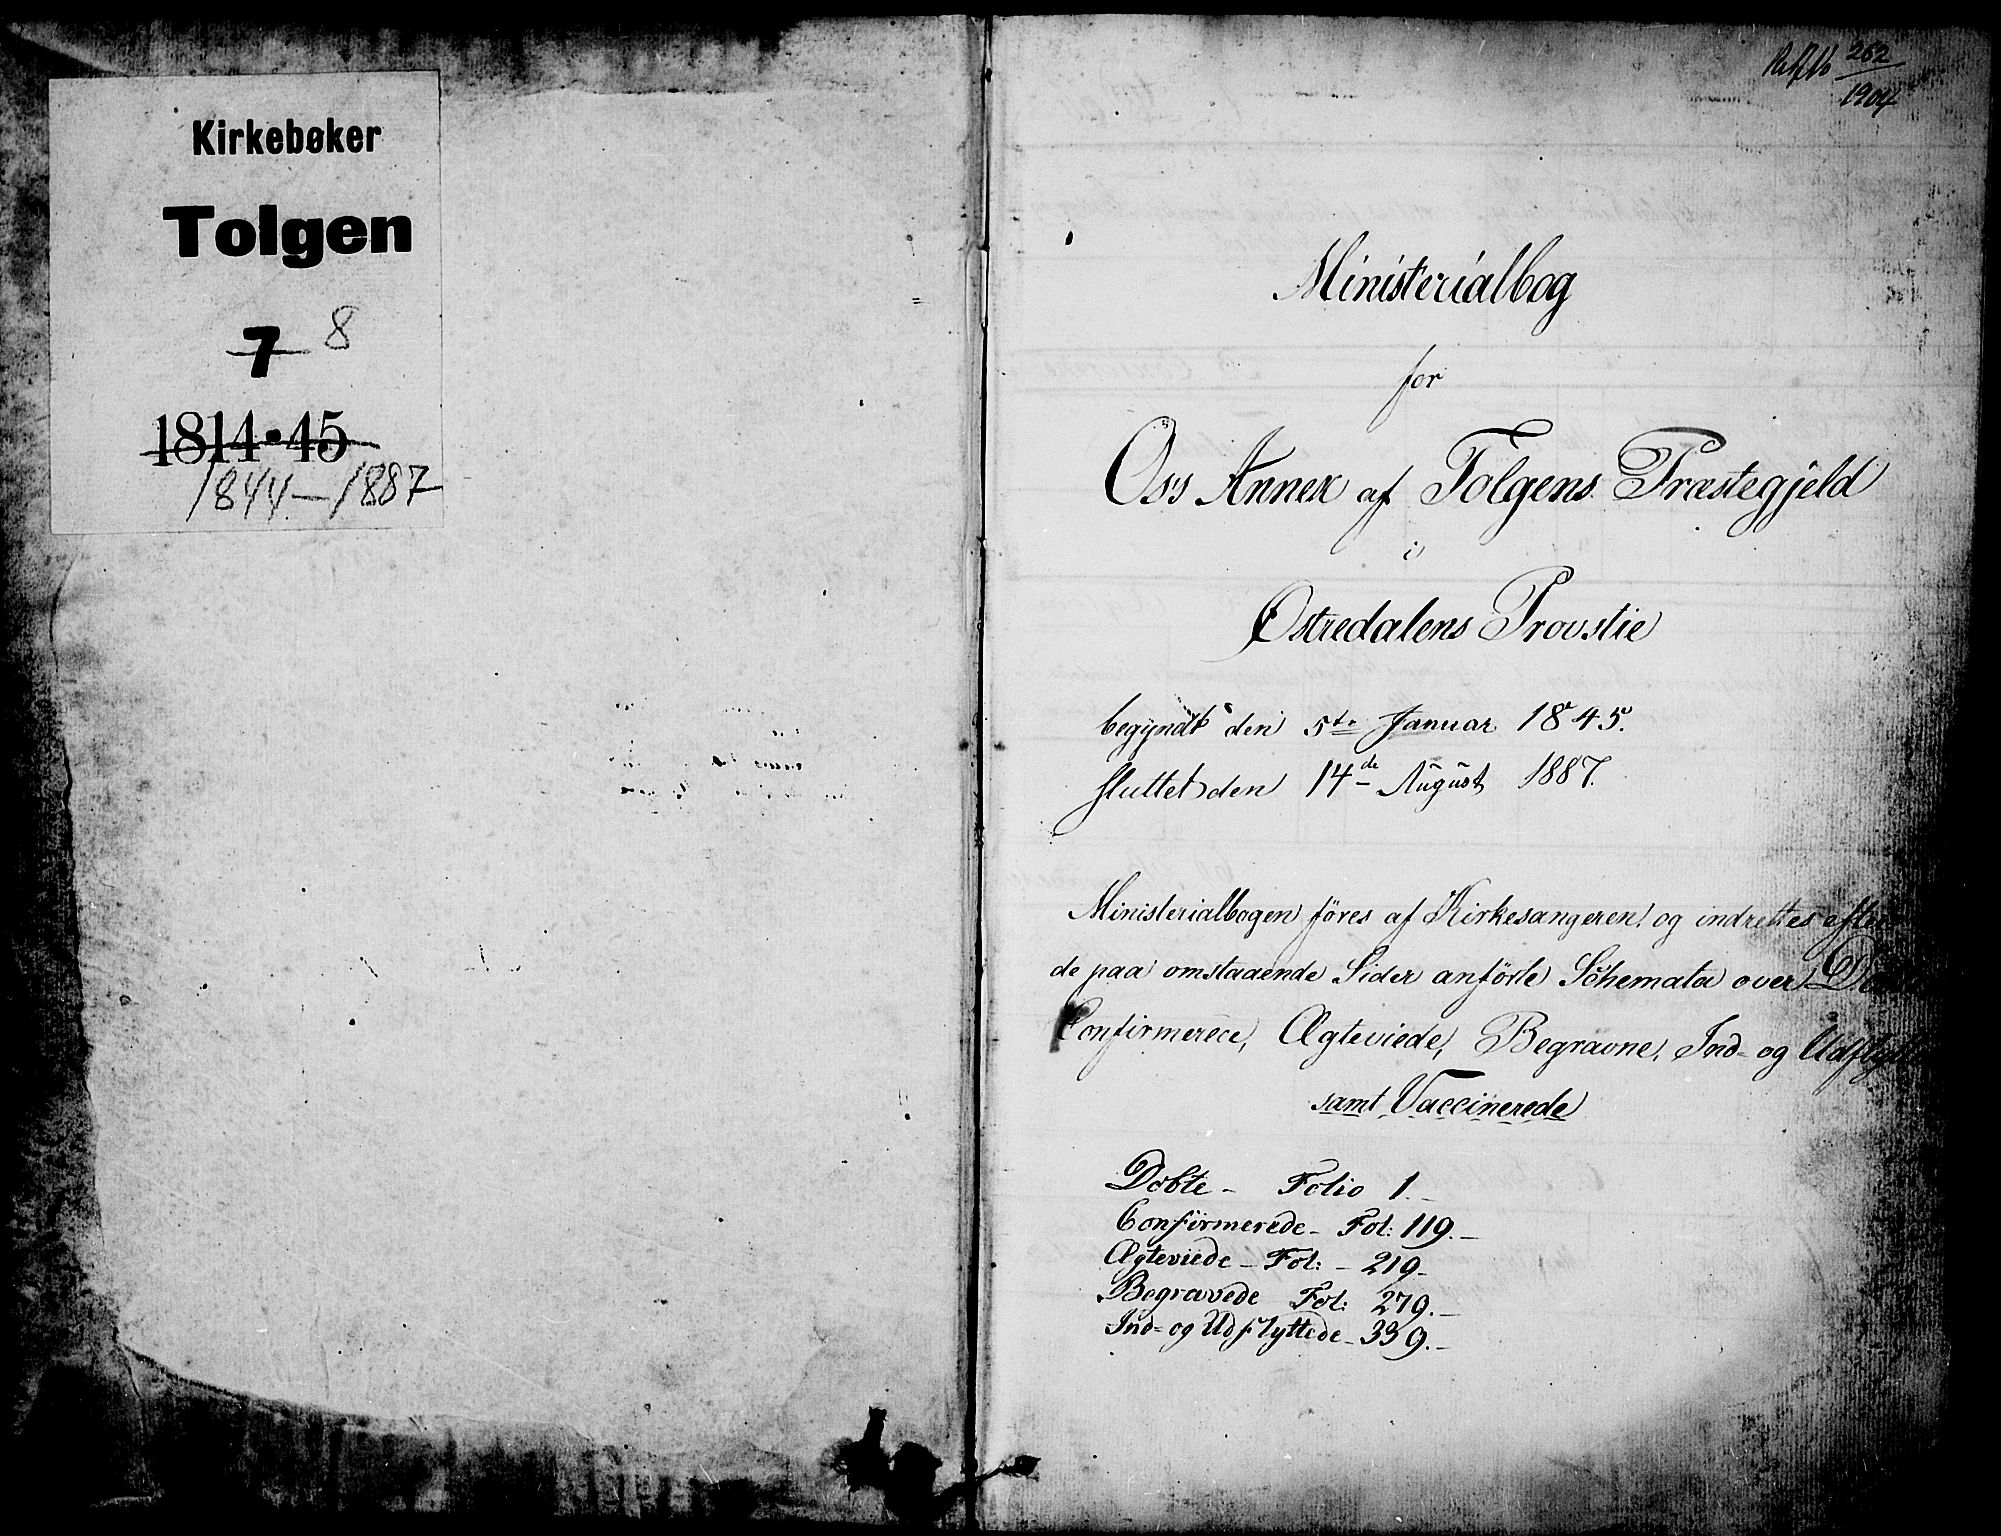 Kirkebøker
Tolgen
7 8
1814-45
1844-1887
262
1904
Ministerialbog
for
Os's Annex af Tolgens Præstegjeld
i
Østredalens Provstie
begyndt den 5te Januar 1845.
sluttet den 14de August 1887.
Ministerialbogen föres af Kirkesangeren, og indrettes efter
de paa omstaaende Sider anförte Schemata over
Confirmerede, Ægteviede, Begravne, Ind- og
samt Vaccinerede
Döbte - Folio 1.-
Confirmerede - Fol: 119.-
Ægteviede - Fol: - 219-
Begravede Fol: 279.-
Ind- og Udflyttede - 339.-